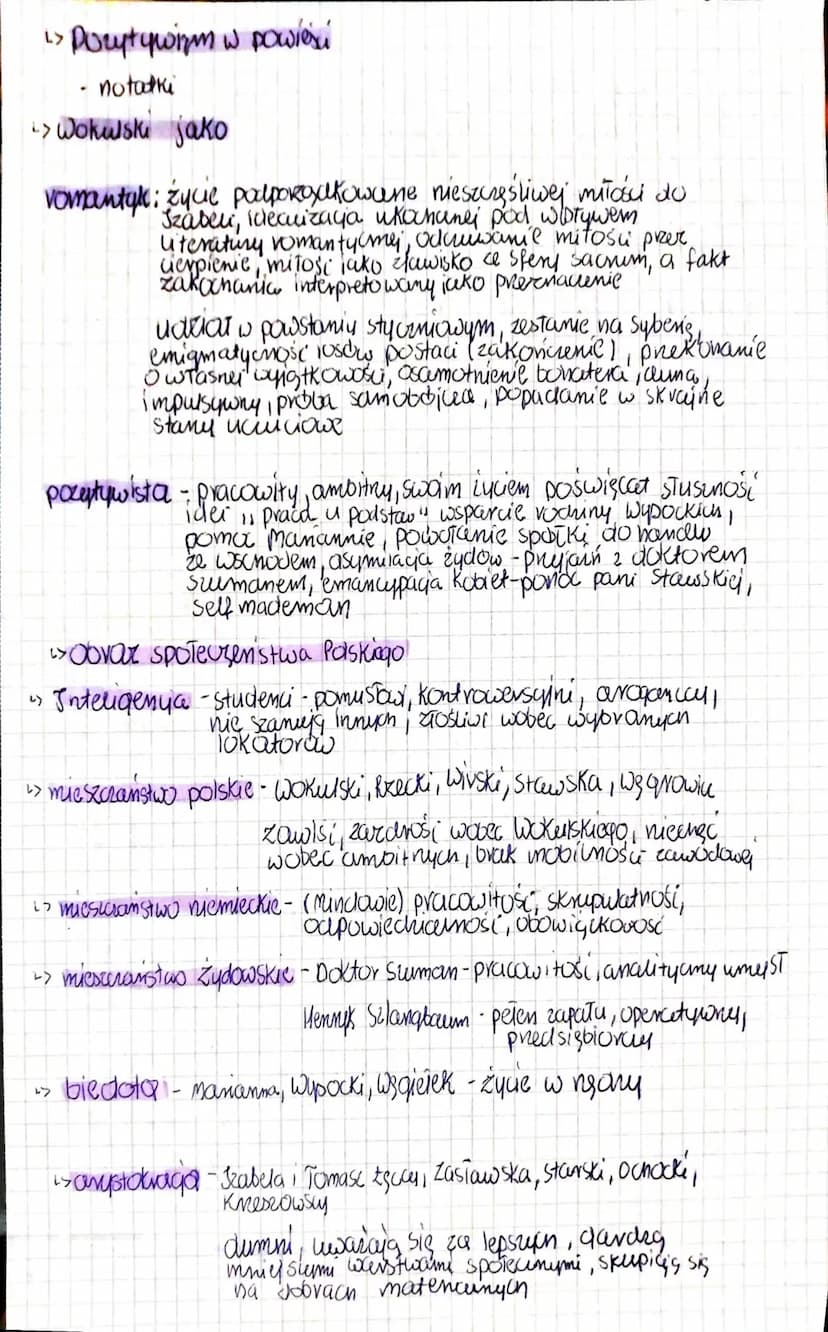 ↳ Pozytywizm w powieści
- notatki
↳ Wokulski jako
romantyk: życie podporządkowane nieszczęśliwej miłości do
Izabeli, idealizacja ukochanej pod wpływem
literatury romantycznej, odczuwanie miłości przez
cierpienie, miłość jako zjawisko ze sfery sacrum, a fakt
zakochania interpretowany jako przeznaczenie
udział w powstaniu styczniowym, zesłanie na Syberię,
enigmatyczność losów postaci (zakończenie), przekonanie
o własnej wyjątkowości, osamotnienie bohatera, duma,
impulsywny, próba samobójcza, popadanie w skrajne
stany uczuciowe
pozytywista - pracowity, ambitny, swoim życiem poświęcał słuszność
idei ,,praca u podstaw" wsparcie rodziny Wypockich,
pomoc Mariannie, powołanie spółki do handlu
ze wschodem, asymilacja żydów - przyjaźń z doktorem
Szumanem, emancypacja kobiet - pomoc pani Stawskiej,
self mademan
↳ Obraz społeczeństwa Polskiego
↳ Inteligencja - studenci - pomysłowi, kontrowersyjni, aroganccy,
nie szanują innych, złośliwi wobec wybranych
lokatorów
↳ mieszczaństwo polskie - Wokulski, Rzecki, Wirski, Stawska, Węgrowicz
zawiść, zazdrość wobec Wokulskiego, niechęć
wobec ambitnych, brak mobilności zawodowej
↳ mieszczaństwo niemieckie - (Minclowie) pracowitość, skrupulatność,
odpowiedzialność, obowiązkowość
↳ mieszczaństwo Żydowskie - Doktor Szuman - pracowitość, analityczny umysł
Henryk Szlangbaum - pełen zapału, operatywny,
przedsiębiorczy
↳ biedota - Marianna, Wypocki, Węgiełek - życie w nędzy
↳ arystokracja - Izabela i Tomasz Łęccy, Zasławska, Starski, Ochocki,
Krzeszowscy
dumni, uważają się za lepszych, gardzą
mniejszymi warstwami społecznymi, skupiają się
na dobrach materialnych